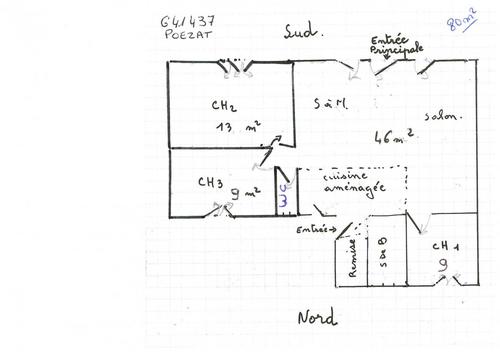 641437
POEZAT
Sud.
80 m²
Entrée
Principale
CH2
13 m²
S à M.
Salon.
46 m²
CH3
9 m²
cuisine
aménagée
Entrée
Remise
S de B
CH 1
9
Nord